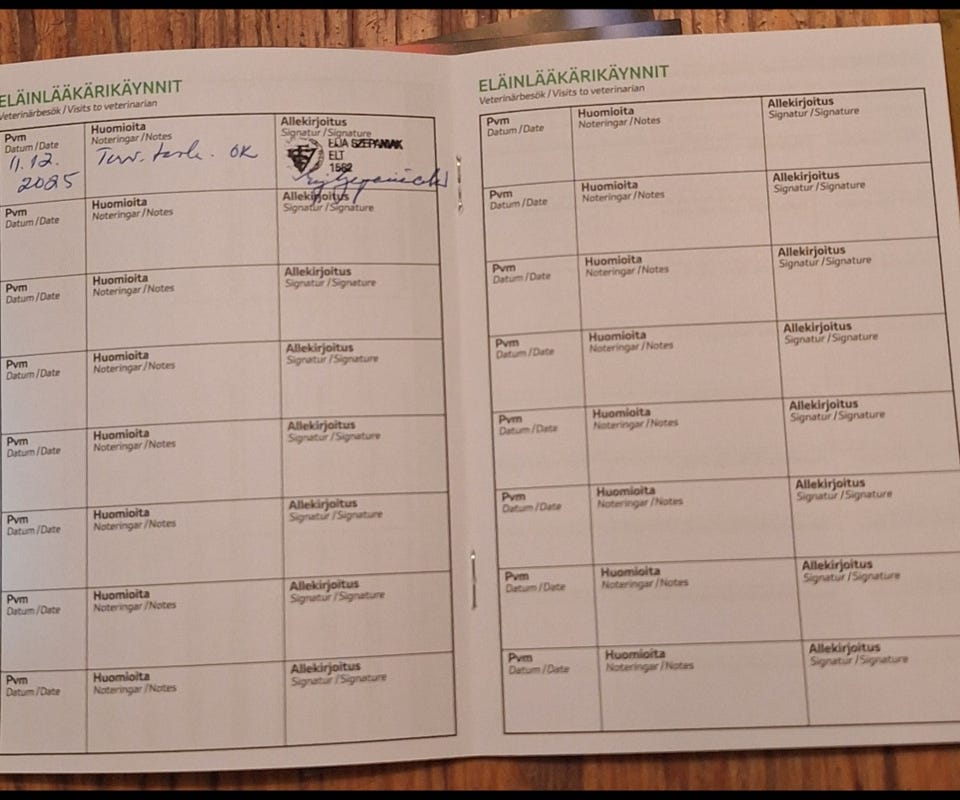 ELÄINLÄÄKÄRIKÄYNNIT
Veterinärbesök / Visits to veterinarian
Pvm
Datum / Date
11.12.
2025
Huomioita
Noteringar / Notes
Terv. tark. OK
Allekirjoitus
Signatur / Signature
EIJA SZEPANIAK
ELT
1562
Pvm
Datum / Date
Huomioita
Noteringar / Notes
Allekirjoitus
Signatur / Signature
Pvm
Datum / Date
Huomioita
Noteringar / Notes
Allekirjoitus
Signatur / Signature
Pvm
Datum / Date
Huomioita
Noteringar / Notes
Allekirjoitus
Signatur / Signature
Pvm
Datum / Date
Huomioita
Noteringar / Notes
Allekirjoitus
Signatur / Signature
Pvm
Datum / Date
Huomioita
Noteringar / Notes
Allekirjoitus
Signatur / Signature
Pvm
Datum / Date
Huomioita
Noteringar / Notes
Allekirjoitus
Signatur / Signature
Pvm
Datum / Date
Huomioita
Noteringar / Notes
Allekirjoitus
Signatur / Signature
ELÄINLÄÄKÄRIKÄYNNIT
Veterinärbesök / Visits to veterinarian
Pvm
Datum / Date
Huomioita
Noteringar / Notes
Allekirjoitus
Signatur / Signature
Pvm
Datum / Date
Huomioita
Noteringar / Notes
Allekirjoitus
Signatur / Signature
Pvm
Datum / Date
Huomioita
Noteringar / Notes
Allekirjoitus
Signatur / Signature
Pvm
Datum / Date
Huomioita
Noteringar / Notes
Allekirjoitus
Signatur / Signature
Pvm
Datum / Date
Huomioita
Noteringar / Notes
Allekirjoitus
Signatur / Signature
Pvm
Datum / Date
Huomioita
Noteringar / Notes
Allekirjoitus
Signatur / Signature
Pvm
Datum / Date
Huomioita
Noteringar / Notes
Allekirjoitus
Signatur / Signature
Pvm
Datum / Date
Huomioita
Noteringar / Notes
Allekirjoitus
Signatur / Signature